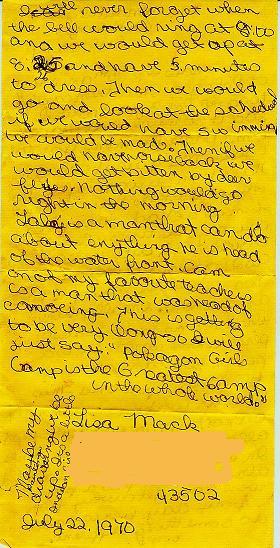 I will never forget when
the bell would ring at 8:00
and we would get up at
8:25 and have 5 minutes
to dress. Then we would
go and look at the schedual
if we would have swimming
we would be made. Then if we
would have horseback we
would get bitten by deer
flys. Nothing would go
right in the morning
is a man that can do
about enything he is head
of the water front. Cam
on of my favorite teachers
is a man that was head of
canoeing. This is getting
to be very long so I will
just say. "Pokagon Girls
Camp is the Greatest Camp
in the whole world."
Lisa Mack
43502
July 22, 1970
Maybe my
writing
be
is a little